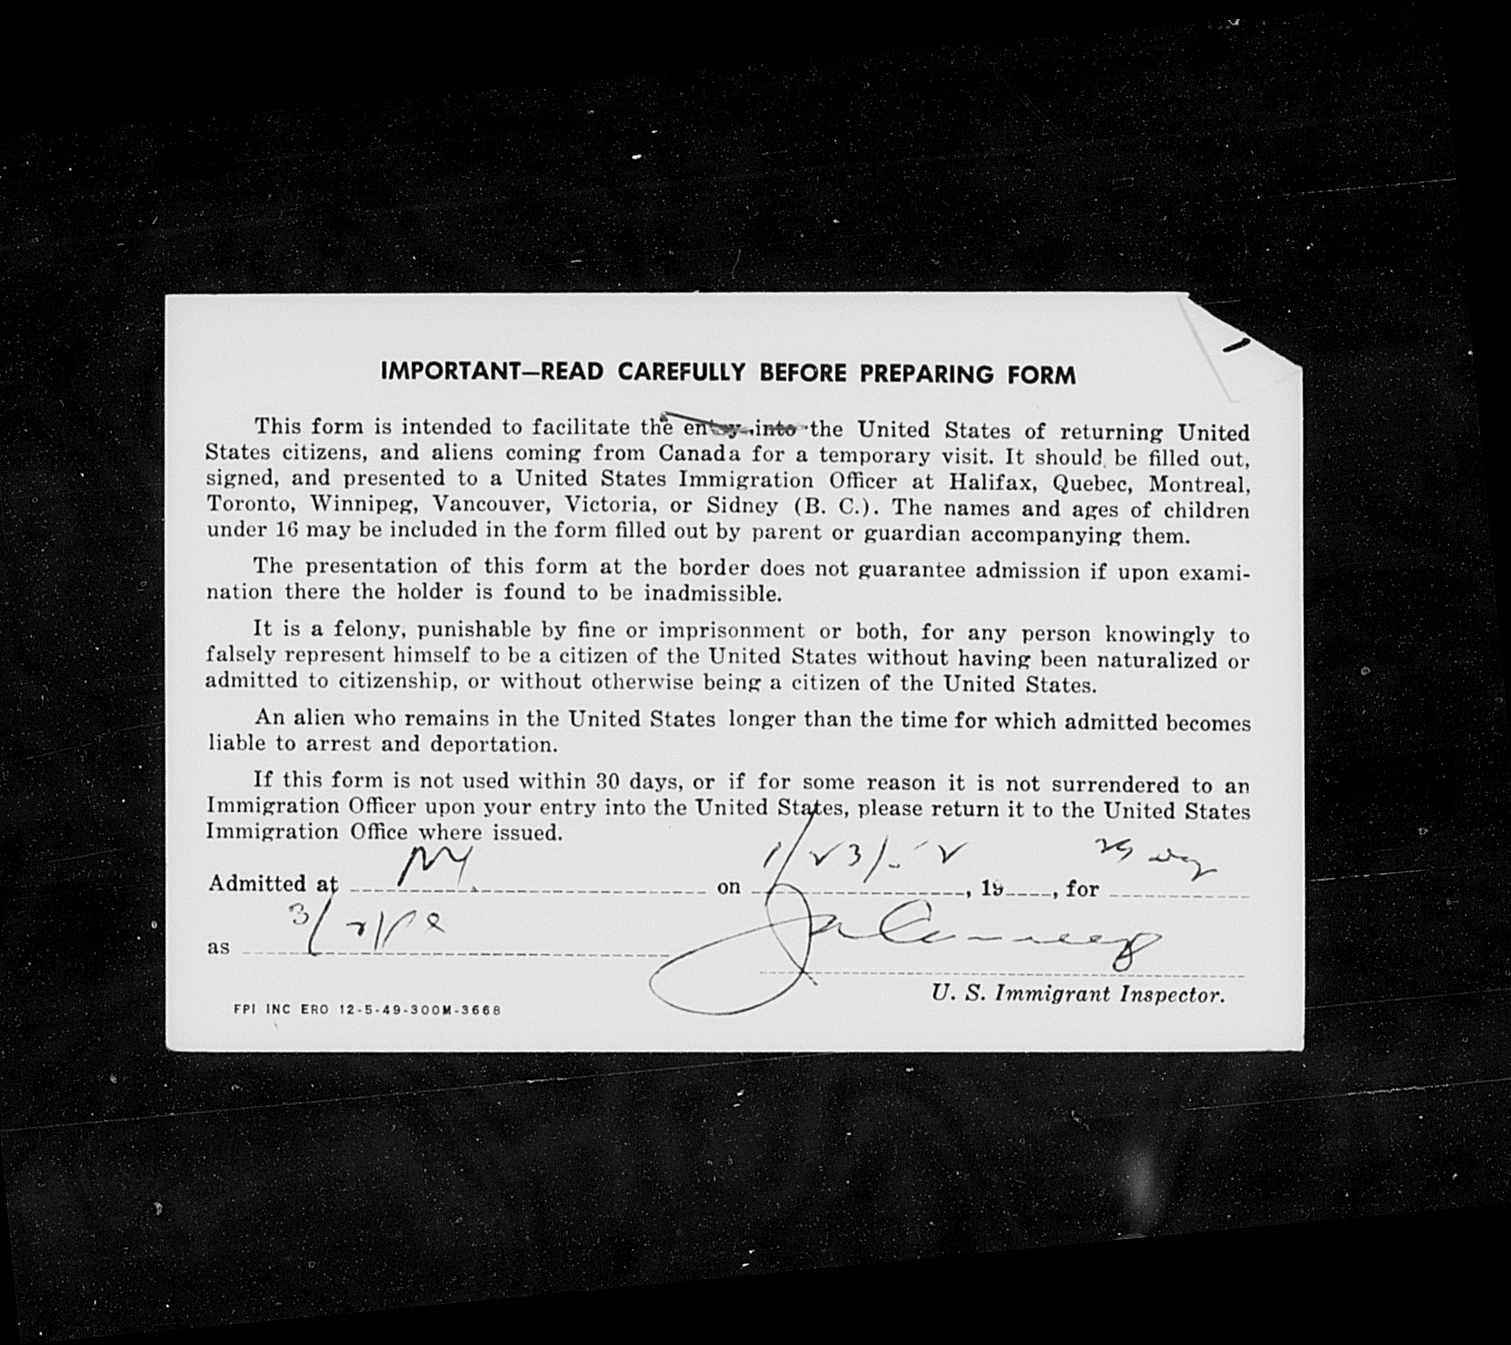 IMPORTANT—READ CAREFULLY BEFORE PREPARING FORM
This form is intended to facilitate the entry into the United States of returning United
States citizens, and aliens coming from Canada for a temporary visit. It should be filled out,
signed, and presented to a United States Immigration Officer at Halifax, Quebec, Montreal,
Toronto, Winnipeg, Vancouver, Victoria, or Sidney (B. C.). The names and ages of children
under 16 may be included in the form filled out by parent or guardian accompanying them.
The presentation of this form at the border does not guarantee admission if upon exami-
nation there the holder is found to be inadmissible.
It is a felony, punishable by fine or imprisonment or both, for any person knowingly to
falsely represent himself to be a citizen of the United States without having been naturalized or
admitted to citizenship, or without otherwise being a citizen of the United States.
An alien who remains in the United States longer than the time for which admitted becomes
liable to arrest and deportation.
If this form is not used within 30 days, or if for some reason it is not surrendered to an
Immigration Officer upon your entry into the United States, please return it to the United States
Immigration Office where issued.
Admitted at NY on 1/23/52, 19, for 29 days
as
U. S. Immigrant Inspector.
FPI INC ERO 12-5-49-300M-3668